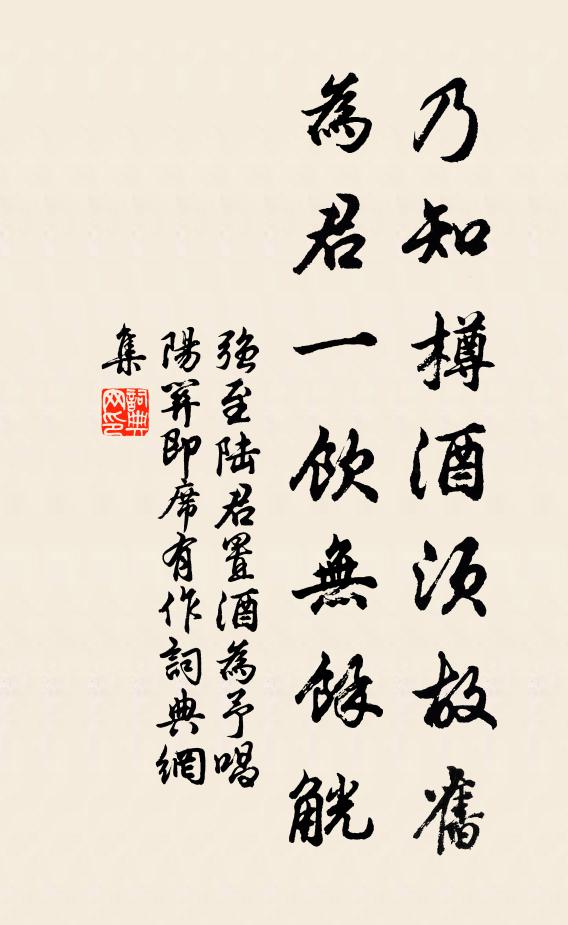 乃知樽酒須故舊
為君一飲無餘觥
強至陸君置酒為予唱
陽羿即席有作詞典網
集
詞典
网印